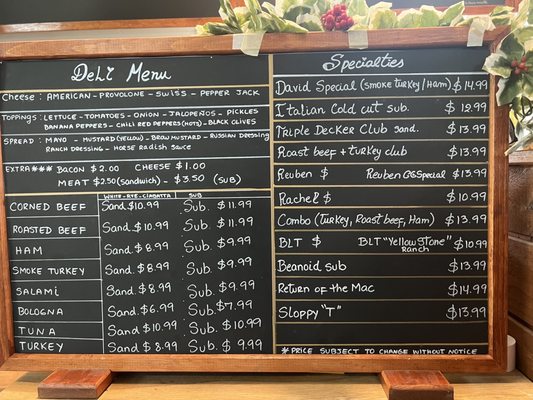 Deli Menu
Cheese : AMERICAN - PROVOLONE - SWISS - PEPPER JACK
TOPPINGS : LETTUCE - TOMATOES - ONION - JALAPEÑOS - PICKLES
BANANA PEPPERS - CHILI RED PEPPERS (HOTS) - BLACK OLIVES
SPREAD : MAYO - MUSTARD (YELLOW) - BROW MUSTARD - RUSSIAN DRESSING
RANCH DRESSING - HORSE RADISH SAUCE
EXTRA*** BACON $2.00 CHEESE $1.00
MEAT $2.50 (SANDWICH) - $3.50 (SUB)
WHITE - RYE - CIABATTA SUB
CORNED BEEF Sand. $10.99 Sub. $11.99
ROASTED BEEF Sand. $10.99 Sub. $11.99
HAM Sand. $8.99 Sub. $9.99
SMOKE TURKEY Sand. $8.99 Sub. $9.99
SALAMI Sand. $8.99 Sub. $9.99
BOLOGNA Sand. $6.99 Sub. $7.99
TUNA Sand $10.99 Sub. $10.99
TURKEY Sand $8.99 Sub. $9.99
Specialties
David Special (smoke Turkey/Ham) $14.99
Italian Cold cut sub. $12.99
Triple Decker Club sand. $13.99
Roast beef + turkey club $13.99
Reuben $ Reuben OG Special $13.99
Rachel $ $10.99
Combo (Turkey, Roast beef, Ham) $13.99
BLT $ BLT "Yellow Stone" $10.99
Ranch
Beanoid sub $13.99
Return of the Mac $14.99
Sloppy "T" $13.99
* PRICE SUBJECT TO CHANGE WITHOUT NOTICE